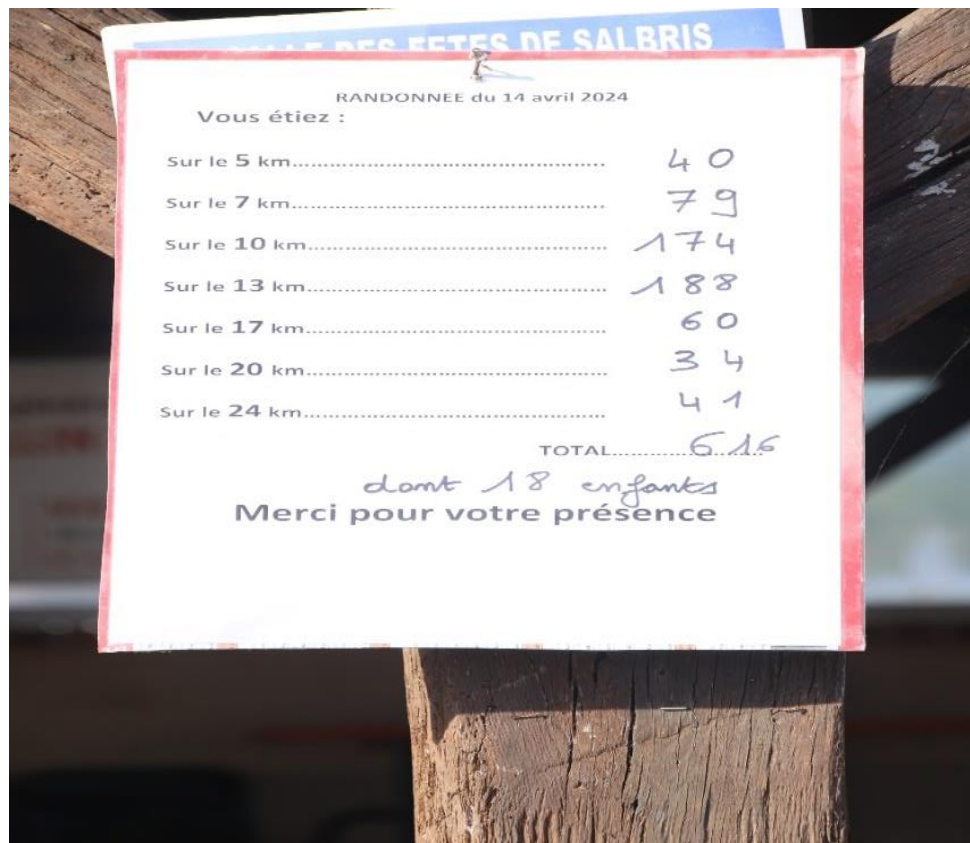 DES FETES DE SALBRIS
RANDONNEE du 14 avril 2024
Vous étiez :
Sur le 5 km.................................................. 40
Sur le 7 km.................................................. 79
Sur le 10 km................................................ 174
Sur le 13 km................................................ 188
Sur le 17 km................................................ 60
Sur le 20 km................................................ 34
Sur le 24 km................................................ 41
TOTAL......................... 616
dont 18 enfants
Merci pour votre présence